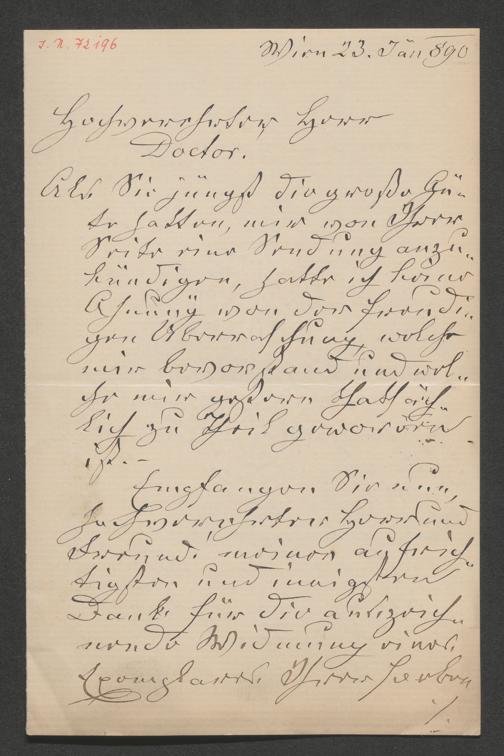 I. N. 72196
Wien 23. Jän 890
Hochverehrter Herr
Doctor.
Als Sie jüngst die große Gü-
te hatten, mir von Ihrer
Seite eine Sendung anzu-
kündigen, hatte ich keine
Ahnung von der freudi-
gen Überraschung, welche
mir bevorstand und wel-
che mir gestern thatsäch-
lich zu Theil geworden
ist. –
Empfangen Sie nun,
hochverehrter Herr und
Freund! meinen aufrich-
tigsten und innigsten
Dank für die auszeich-
nende Widmung eines
Exemplares Ihrer herben
./.